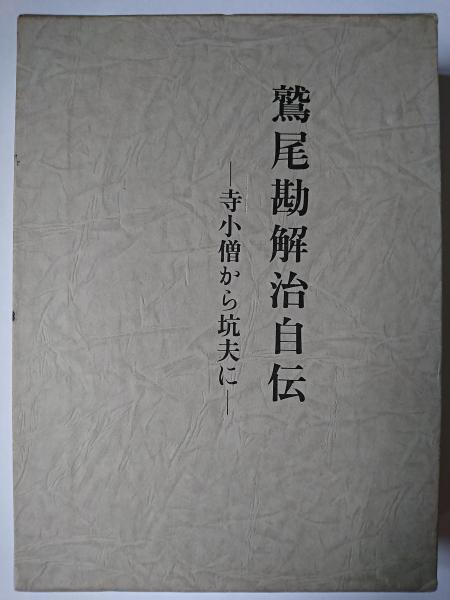 鷲尾勘解治自伝
―寺小僧から坑夫に―